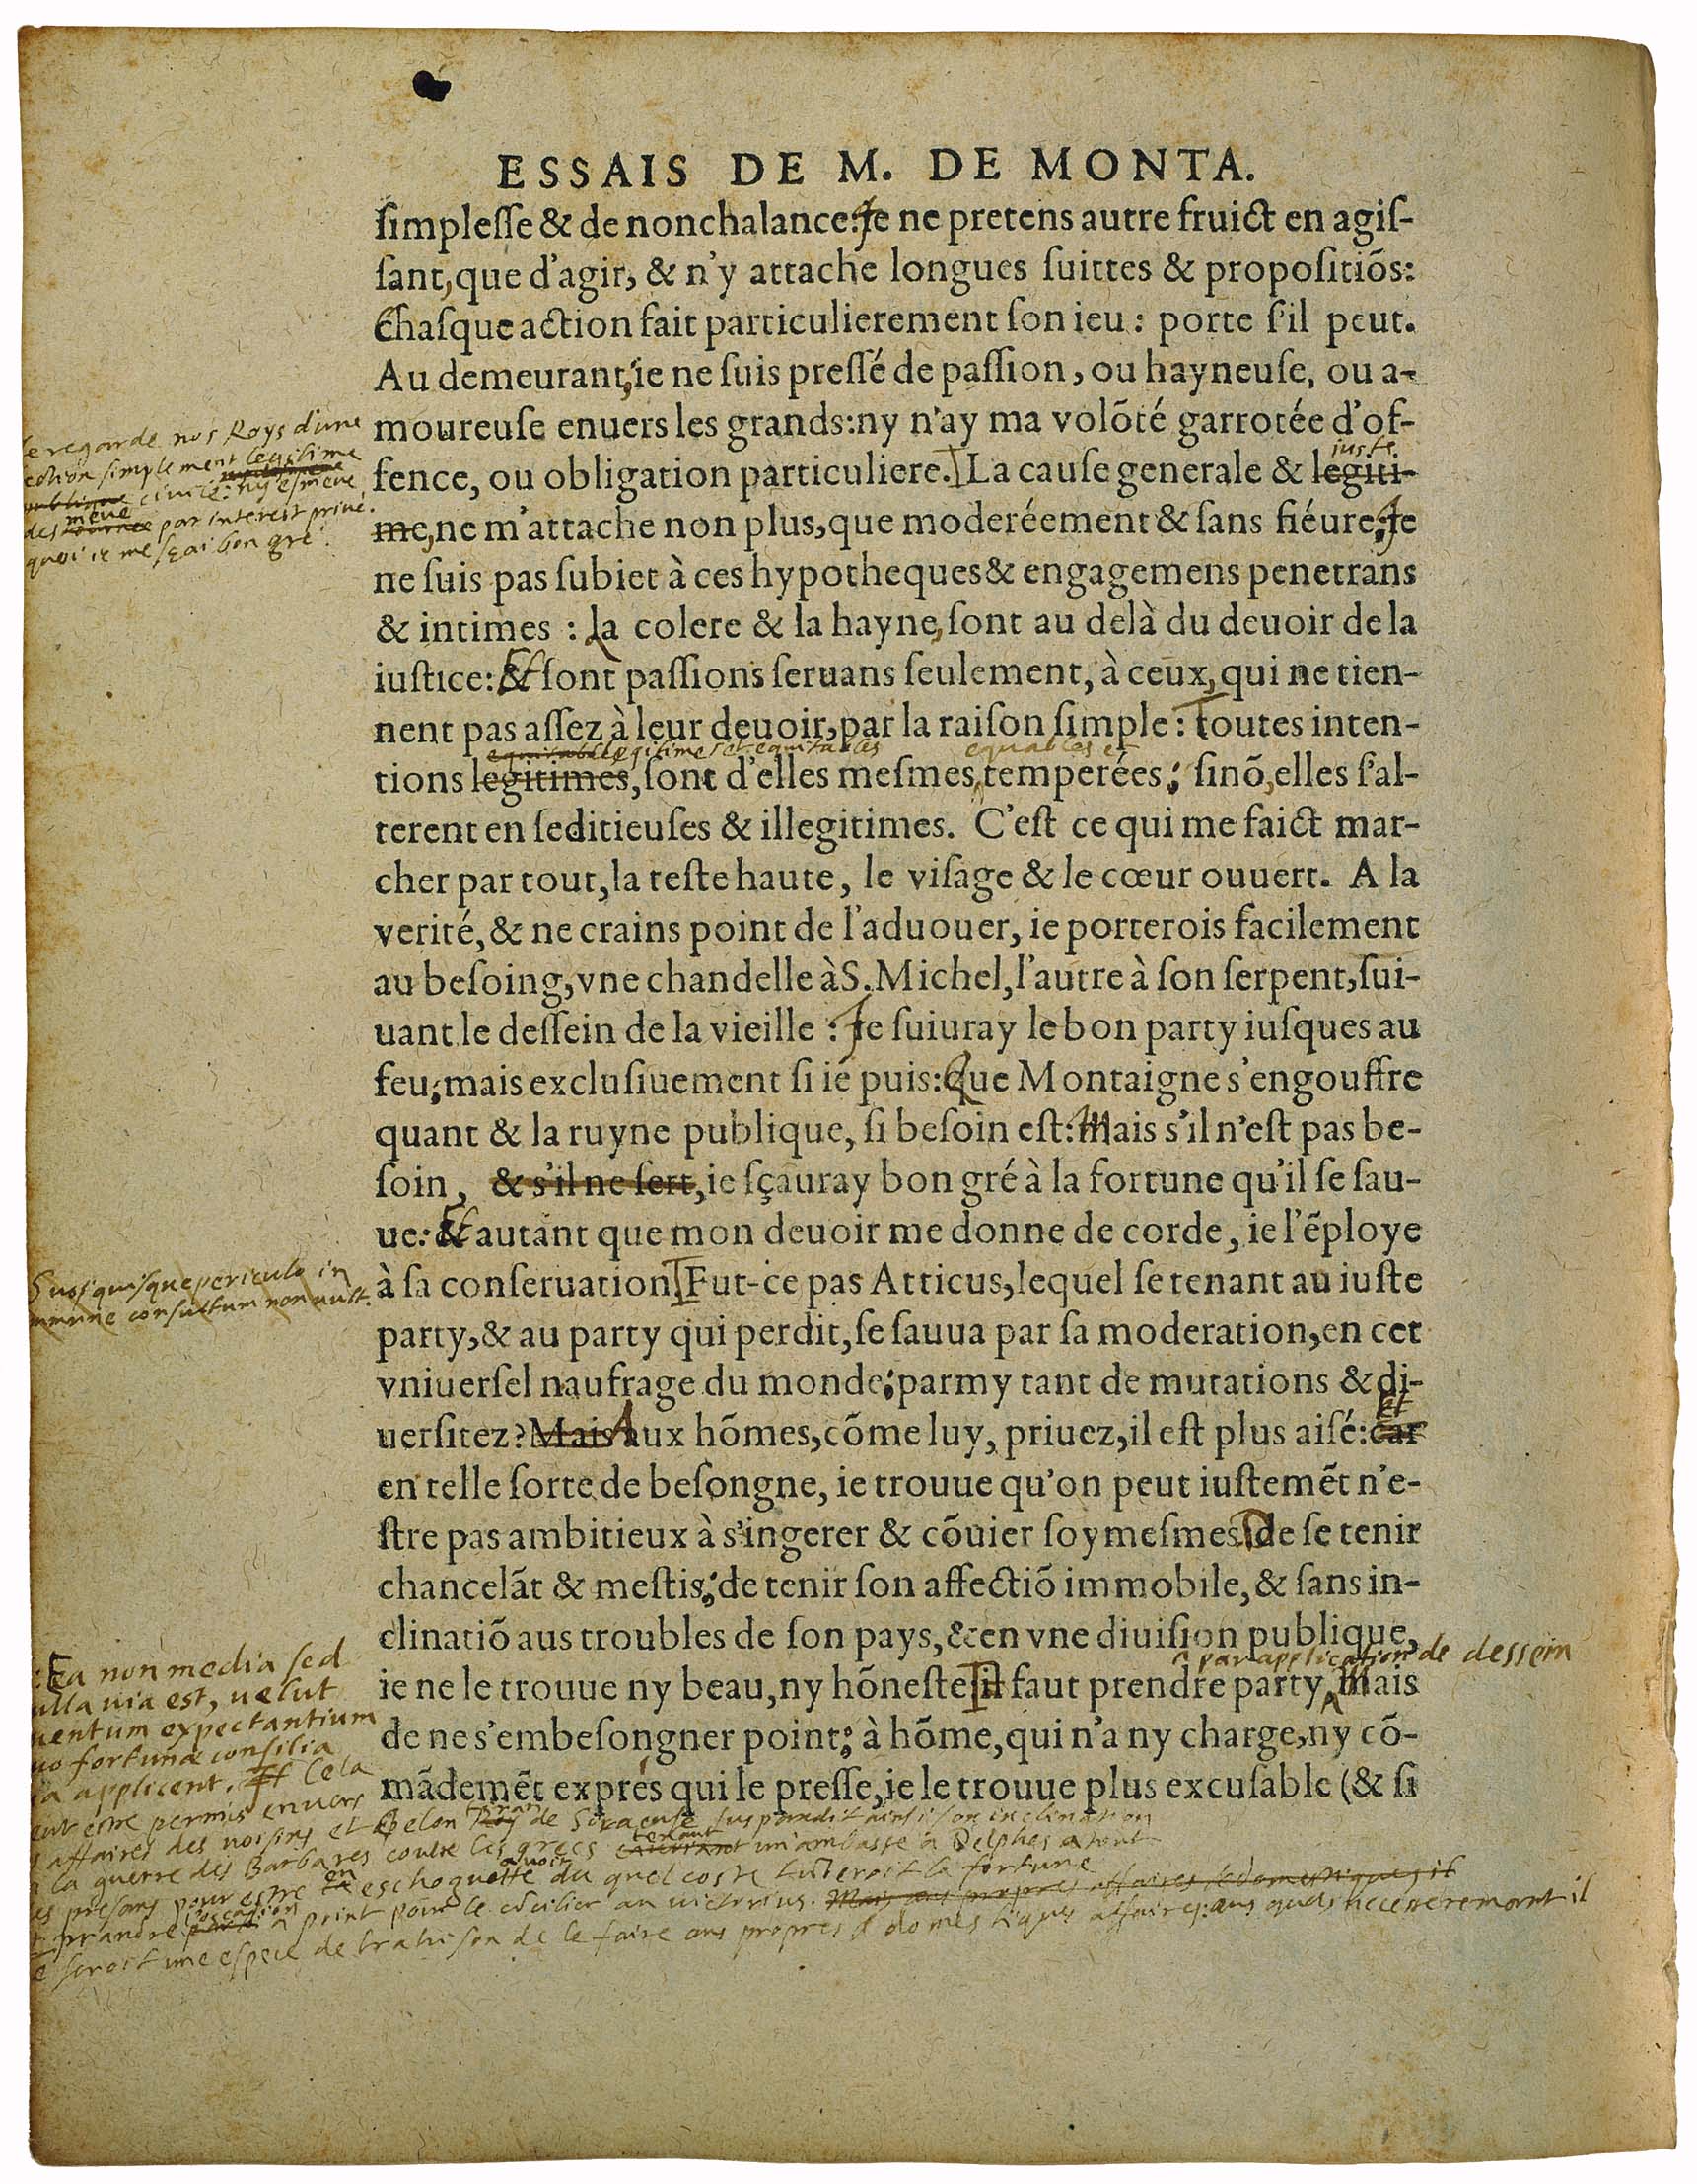 ESSAIS DE M. DE MONTA.
ſimpleſſe & de nonchalance: Je ne pretens autre fruict en agiſ-
ſant, que d'agir, & n'y attache longues ſuittes & propoſitiõs:
Chaſque action fait particulierement ſon ieu: porte s'il peut.
Au demeurant, ie ne ſuis preſſé de paſſion, ou hayneuſe, ou a-
moureuſe enuers les grands: ny n'ay ma volõté garrotée d'of-
fence, ou obligation particuliere. La cauſe generale & legiti-
juste
me, ne m'attache non plus, que moderéement & ſans fiéure: Je
ne ſuis pas ſubiet à ces hypotheques & engagemens penetrans
& intimes: La colere & la hayne, ſont au delà du deuoir de la
iuſtice: Et ſont paſſions ſeruans ſeulement, à ceux, qui ne tien-
nent pas aſſez à leur deuoir, par la raiſon ſimple: Toutes inten-
legitimes et equitables equables et
tions legitimes, ſont d'elles meſmes, temperées: ſinõ, elles s'al-
terent en ſeditieuſes & illegitimes. C'eſt ce qui me faict mar-
cher par tout, la teſte haute, le viſage & le cœur ouuert. A la
verité, & ne crains point de l'aduouer, ie porterois facilement
au beſoing, vne chandelle à S. Michel, l'autre à ſon ſerpent, ſui-
uant le deſſein de la vieille: Je ſuiuray le bon party iuſques au
feu; mais excluſiuement ſi ie puis: Que Montaigne s'engouffre
quant & la ruyne publique, ſi beſoin eſt: Mais s'il n'eſt pas be-
ſoin, & s'il ne ſert, ie ſçauray bon gré à la fortune qu'il ſe ſau-
ue: Et autant que mon deuoir me donne de corde, ie l'ẽploye
à ſa conſeruation. Fut-ce pas Atticus, lequel ſe tenant au iuſte
party, & au party qui perdit, ſe ſauua par ſa moderation, en cet
vniuerſel naufrage du monde; parmy tant de mutations & di-
uerſitez? Mais Aux hõmes, cõme luy, priuez, il eſt plus aiſé: car
Et
en telle ſorte de beſongne, ie trouue qu'on peut iuſtemẽt n'e-
ſtre pas ambitieux à s'ingerer & cõuier ſoy meſmes: De ſe tenir
chancelãt & meſtis; de tenir ſon affectiõ immobile, & ſans in-
clinatiõ aus troubles de ſon pays, & en vne diuiſion publique,
ie ne le trouue ny beau, ny hõneſte: il faut prendre party, Mais
par application de dessein
de ne s'embeſongner point; à hõme, qui n'a ny charge, ny cõ-
mãdemẽt exprés qui le preſſe, ie le trouue plus excuſable (& ſi
Je regarde nos Roys d'une
ection simplement legitime
publique civile: ny esmeue
des meue tournee par interest prive.
quoi ie me sçai bon gre.
Suos quisque periculo in
mmune consultum non vult.
: Ea non media sed
ulla uia est, uelut
uentum expectantium
uo fortunæ consilia
ua applicent. Cela
eut estre permis envers
s affaires des voisins et Gelon tyran de Siracuse suspandit ainsi son inclination
a la guerre des Barbares contre les grecs tenant un'ambasse a Delphes atout
es presans pour estre en eschoguette a voir du quel coste tumberoit la fortune
et prandre l'occasion a point pour le cõcilier au victorius. Mais aus propres affaires & domestiques il
e seroit une espece de trahison de le faire aus propres & domestiques affaires: aus quels necesseremant il